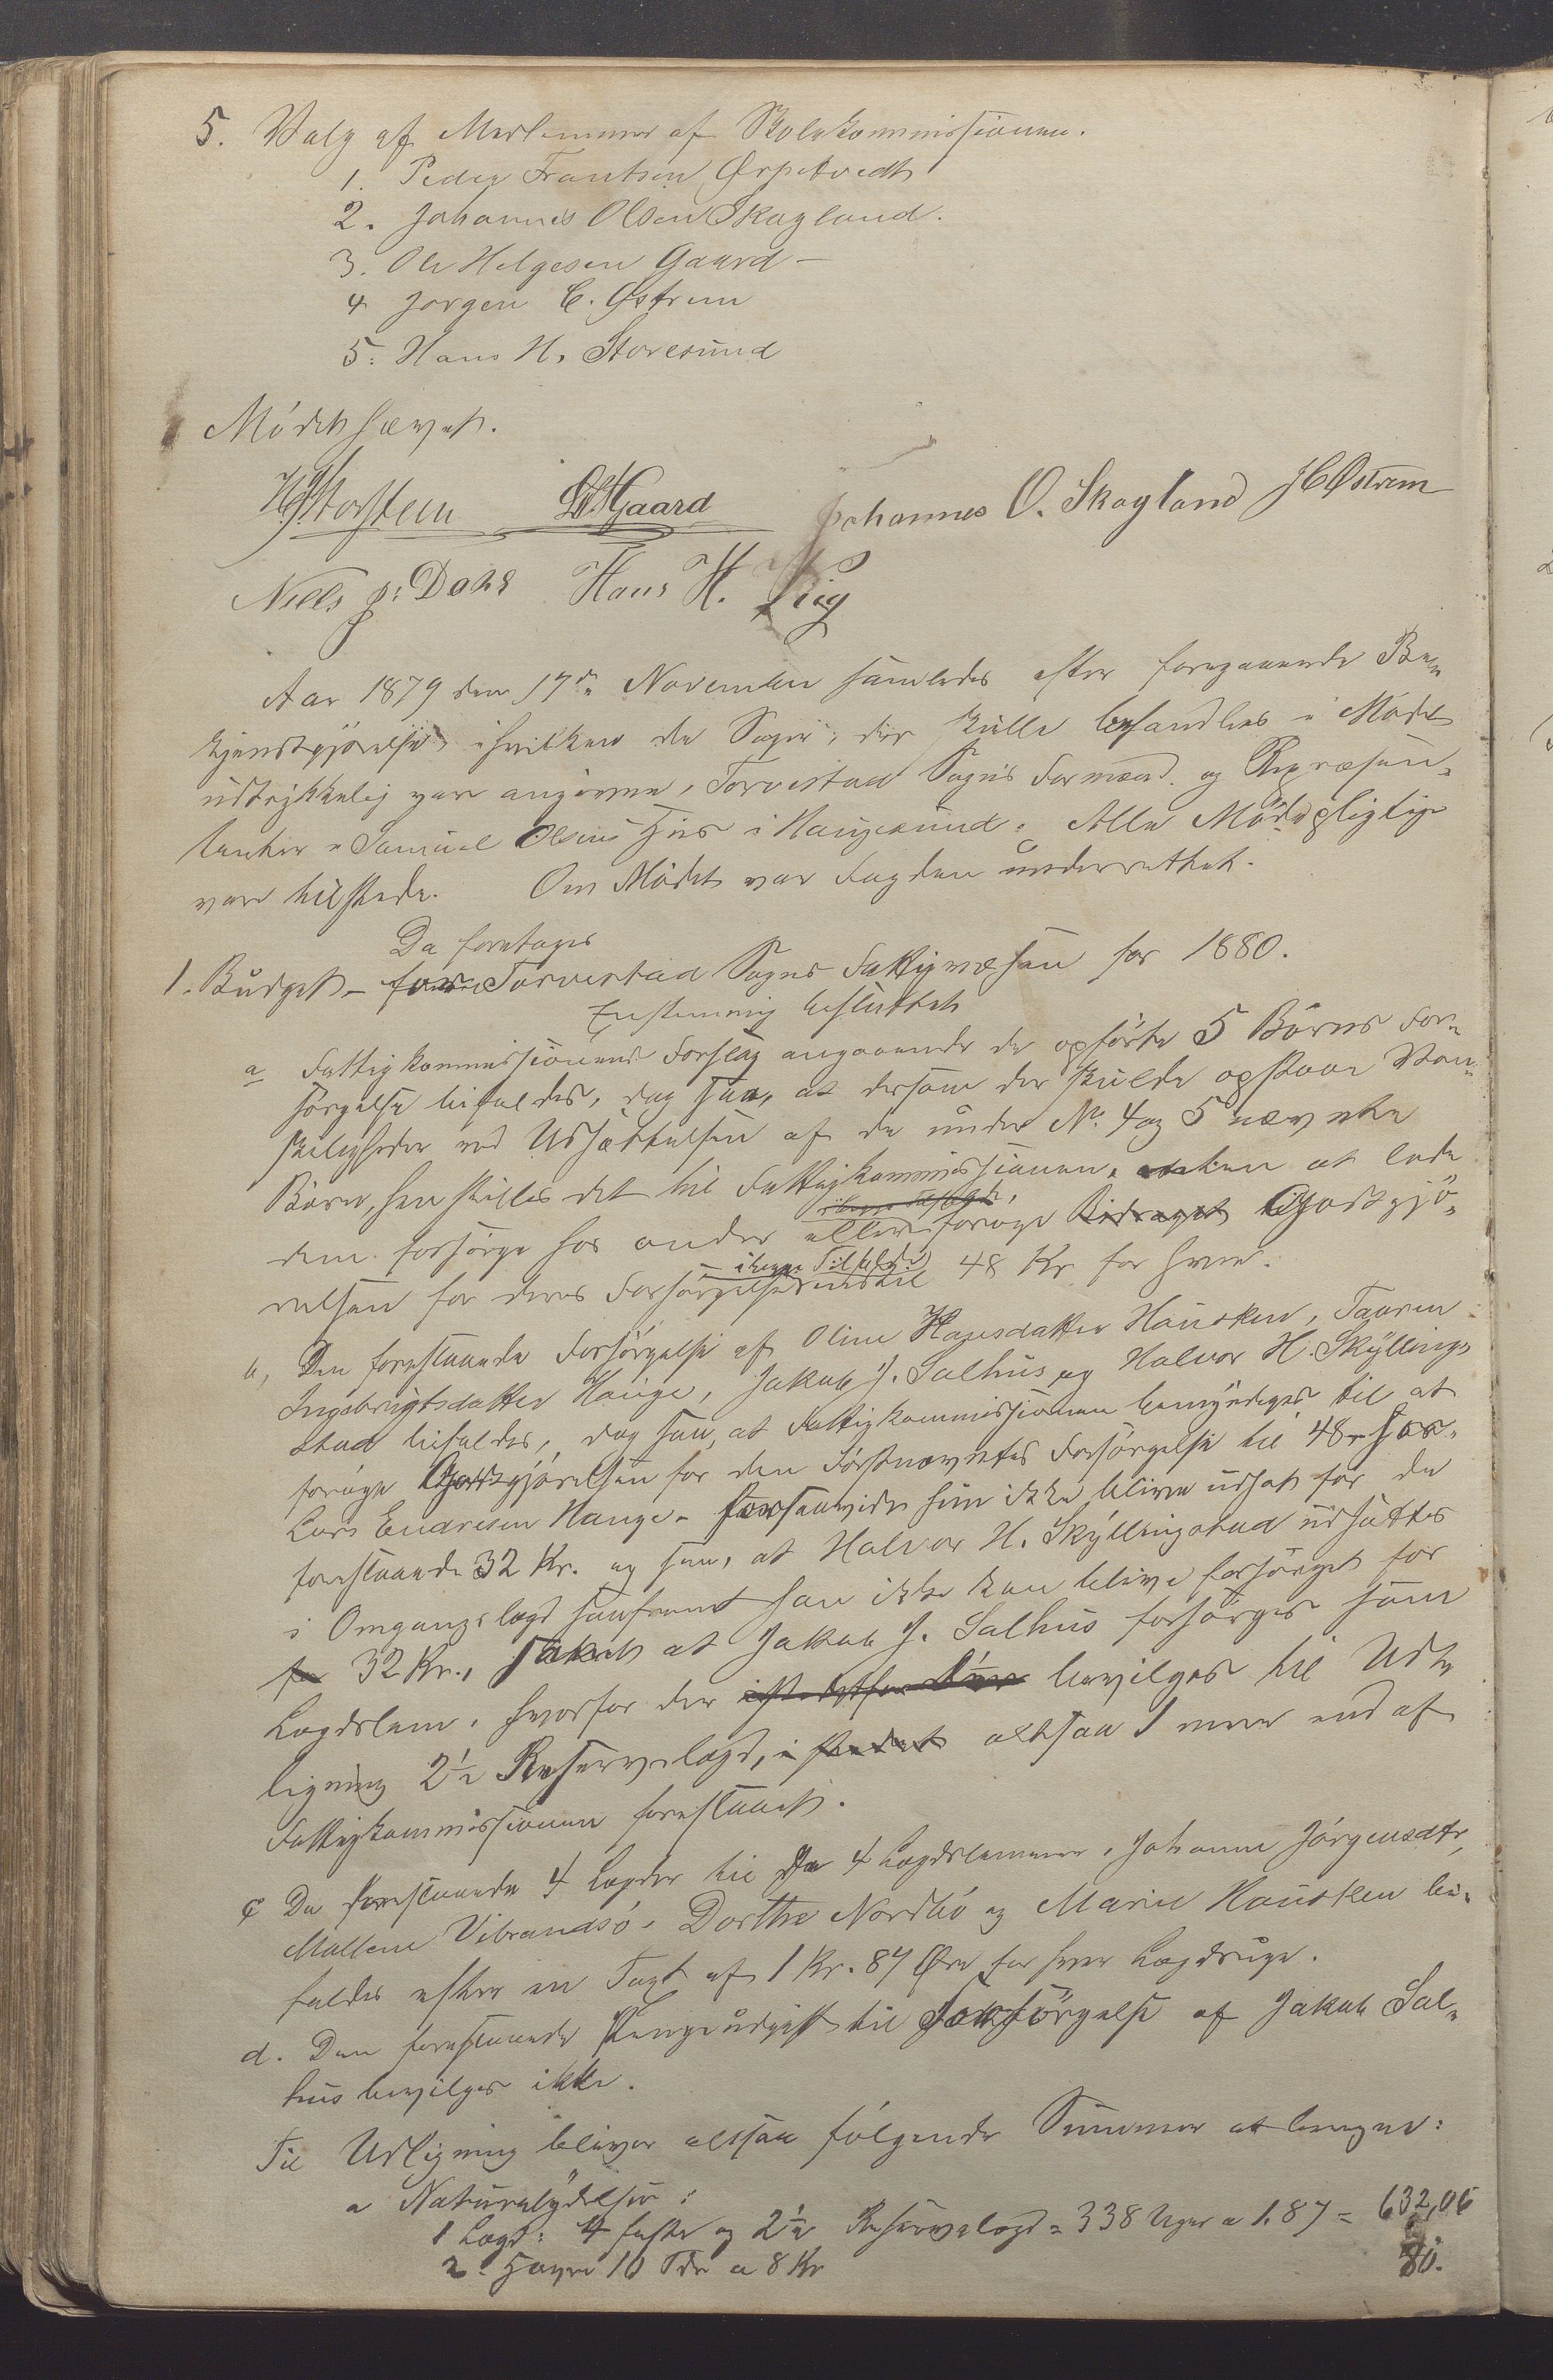 5. Valg af Medlemmer af Skolekommissionen.
1. Peder Frantsen Ørpetvedt
2. Johannes Olsen Skagland.
3. Ole Helgesen Gaard –
4 Jørgen C. Østrem
5. Hans H. Storesund
Mödet hævet.
Storsteen O.H. Gaard Johannes O. Skagland J C Østrem
Niels J. Dahl Hans H. Liig
Aar 1879 den 17de November samledes efter foregaaende Be-
kjendtgjörelse i hvilken de Sager, der skulle behandles i Mödet
udtrykkelig vare angivne, Torvestad Sogns Formænd og Repræsen-
tanter i Samuel Olsens Huus i Haugesund. Alle Mödepligtige
vare tilstede. Om Mödet var Fogden underrettet.
Da foretoges
1. Budget – for Torvestad Sogns Fattigvæsen for 1880.
Enstemmig besluttet
a Fattigkommissionens Forslag angaaende de opförte 5 Börns For-
sörgelse bifaldes, dog saa, at dersom der skulde opstaa Van-
skeligheder ved Udsættelsen af de under No. 4 og 5 nævnte
Börn, henstilles det til Fattigkommissionen, enten at lade
dem forsörge hos andre eller foröge Bidraget Godtgjö-
i begge Tilfælde
relsen for deres Forsörgelse indtil 48 Kr for hver.
b, Den foreslaaede Forsörgelse af Oline Hansdatter Hausken, Taaren
Ingebrigtsdatter Hauge, Jakob J. Salhus og Halvor H. Skyllings-
stad bifaldes, dog saa, at Fattigkommissionen bemyndiges til at
foröge Godtgjörelsen for den Förstnævntes Forsörgelse til 48 – hos
Lars Endresen Hauge – forsaavidt hun ikke bliver udsat for de
foreslaaede 32 Kr. og saa, at Halvor H. Skyllingstad udsættes
i Omgangslægd saafremt han ikke kan blive forsörget for
for 32 Kr., samt at Jakob J. Salhus forsörges som
Lægdslem, hvorfor der bevilges til Udt
ligning 2½ Reservelægd, i stedet altsaa 1 mere end af
Fattigkommissionen foreslaaet.
c De foreslaaede 4 Lægder til de 4 Lægdslemmer, Johanne Jörgensdtr,
Mallene Vibrandsö, Dorthe Nordbö og Marie Hausken bi-
faldes efter en Taxt af 1 Kr. 87 Øre for hver Lægdsuge.
d. Den foreslaaede Pengeudgift til Forsörgelse af Jakob Sal-
hus bevilges ikke.
Til Udligning bliver altsaa fölgende Summer at beregne:
a Naturalydelser:
1 Lægd: 4 faste og 2½ Reservelægd = 338 Uger a 1.87 = 632,06
2. Havre 10 Tdr a 8 Kr 80.